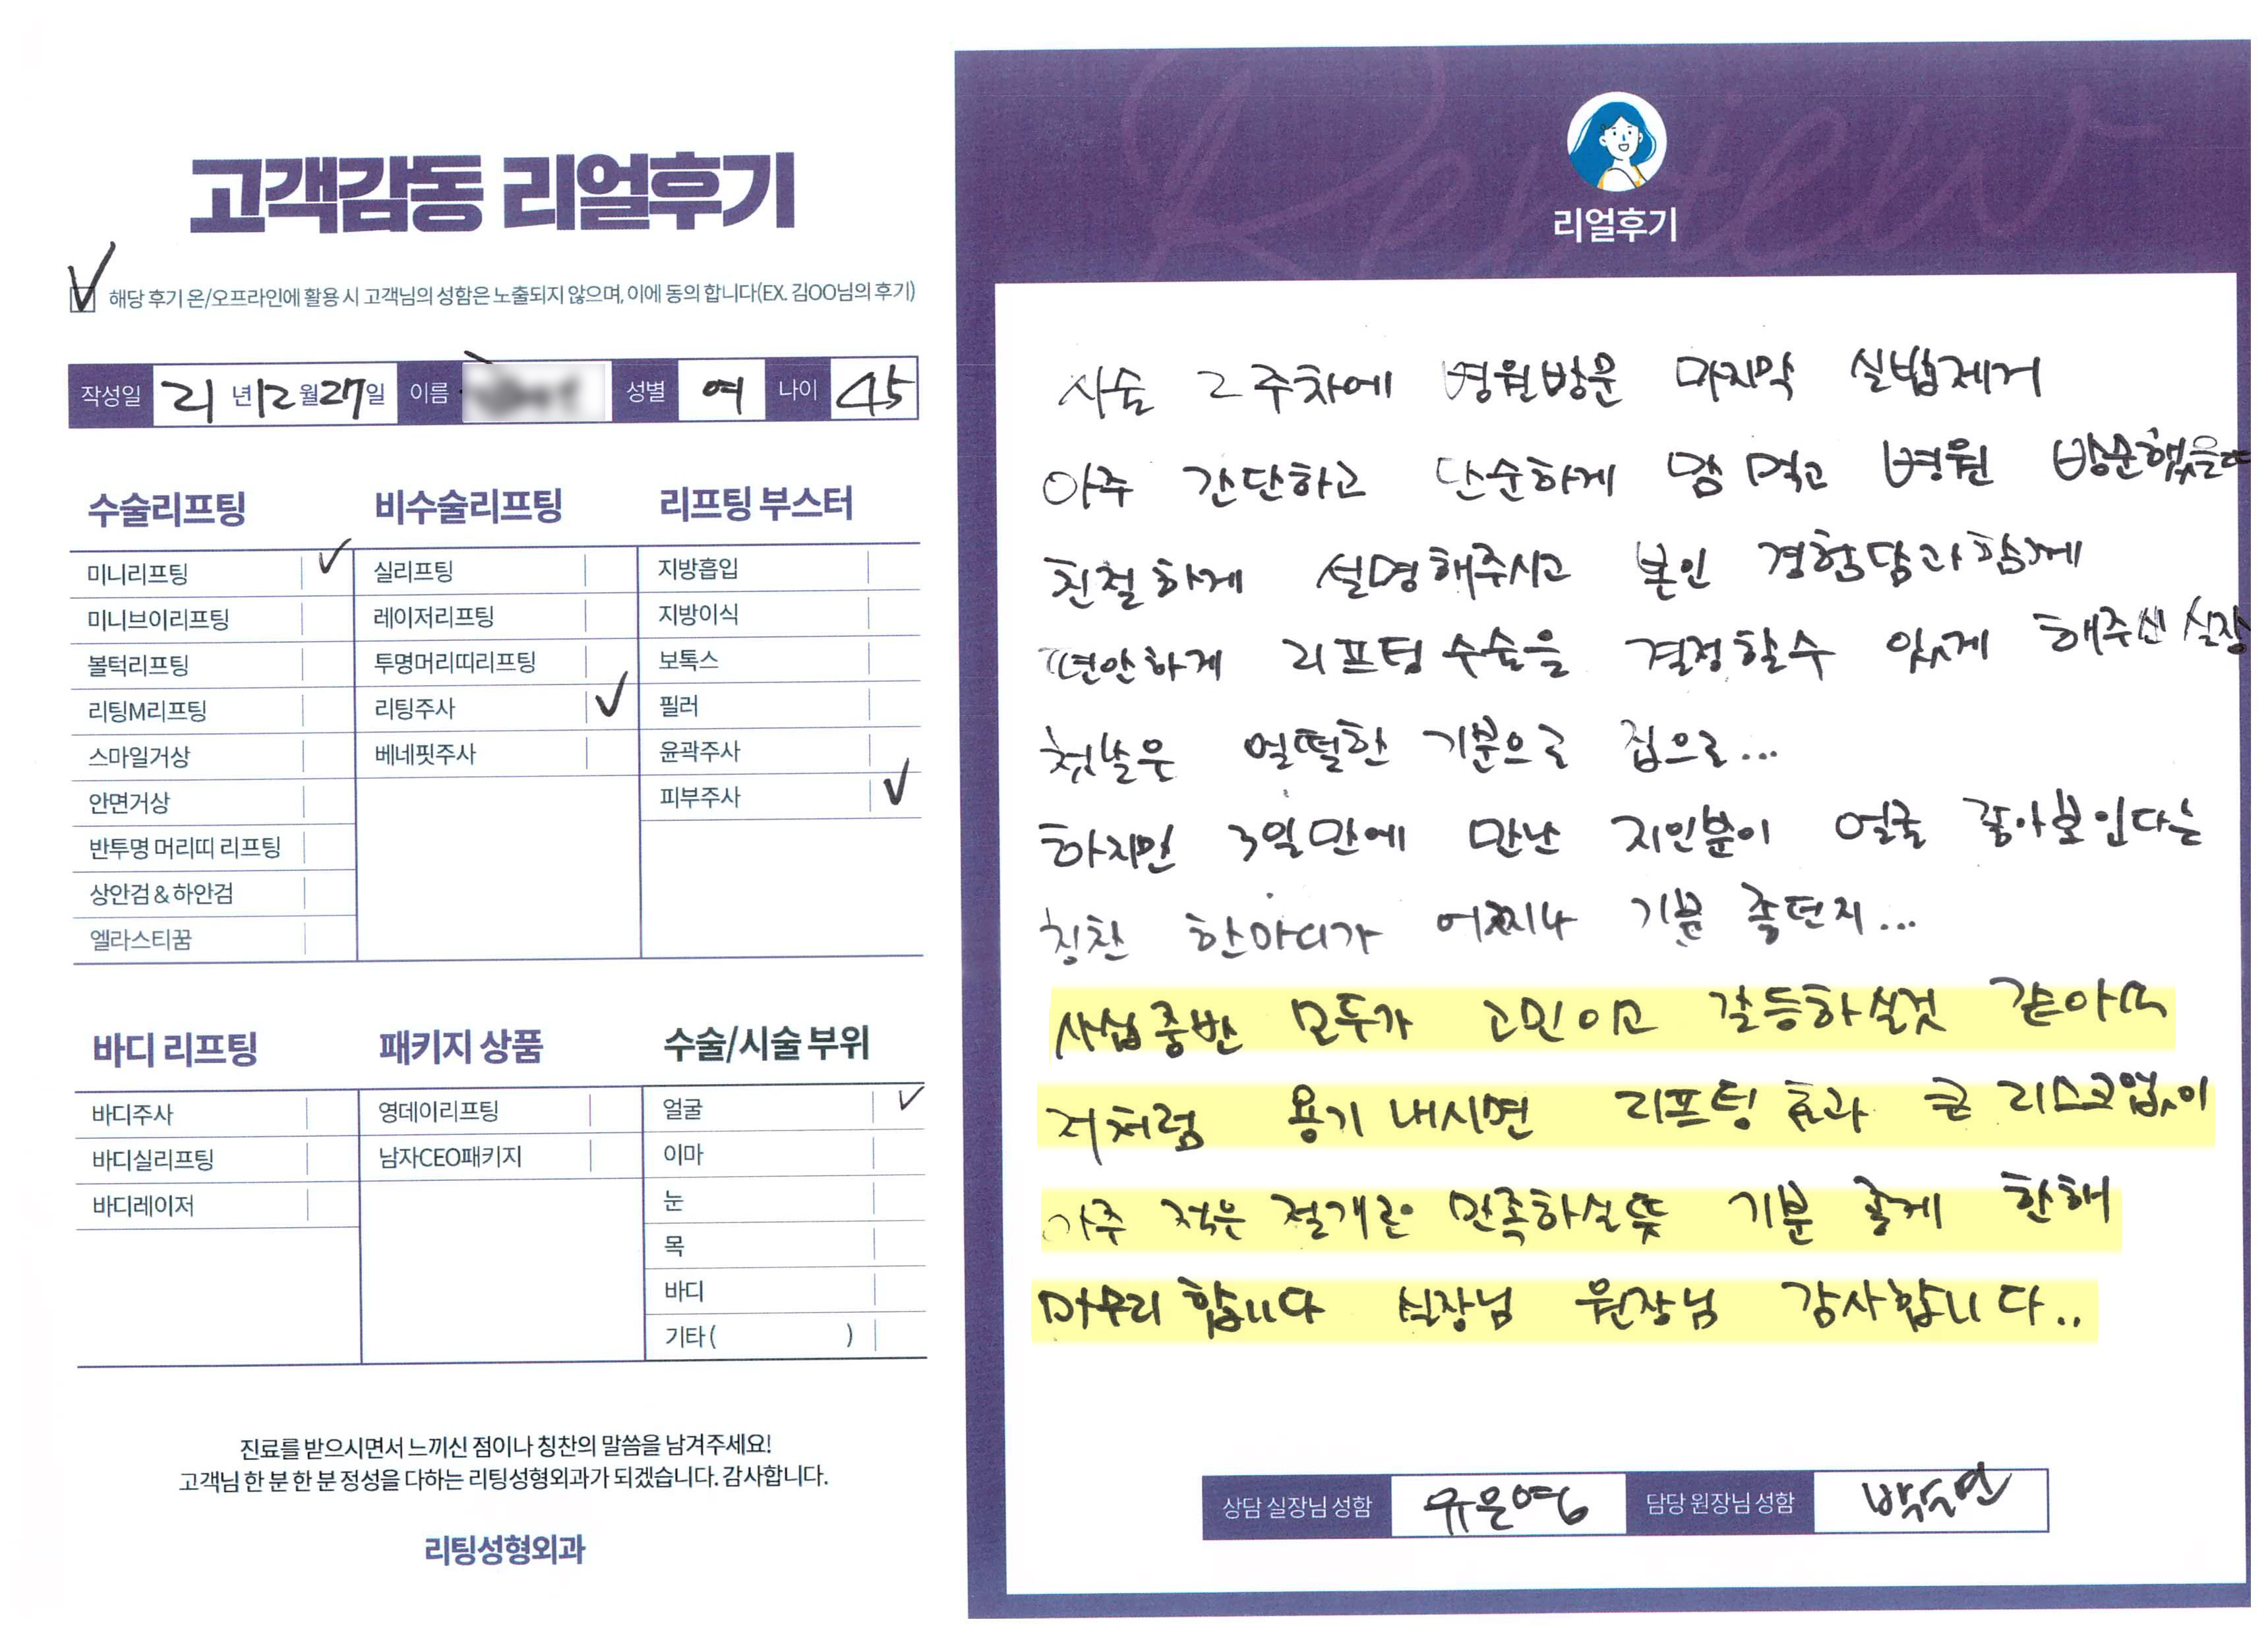 고객감동 리얼후기
해당 후기 온/오프라인에 활용 시 고객님의 성함은 노출되지 않으며, 이에 동의 합니다(EX. 김OO님의 후기)
작성일 21 년 12 월 27 일 이름 성별 여 나이 45
수술리프팅
미니리프팅
미니브이리프팅
볼턱리프팅
리팅M리프팅
스마일거상
안면거상
반투명 머리띠 리프팅
상안검 & 하안검
엘라스티꿈
비수술리프팅
실리프팅
레이저리프팅
투명머리띠리프팅
리팅주사
베네핏주사
리프팅 부스터
지방흡입
지방이식
보톡스
필러
윤곽주사
피부주사
바디 리프팅
바디주사
바디실리프팅
바디레이저
패키지 상품
영데이리프팅
남자CEO패키지
수술/시술 부위
얼굴
이마
눈
목
바디
기타 ( )
진료를 받으시면서 느끼신 점이나 칭찬의 말씀을 남겨주세요!
고객님 한 분 한 분 정성을 다하는 리팅성형외과가 되겠습니다. 감사합니다.
리팅성형외과
Review
리얼후기
시술 2주차에 병원방문 마지막 실밥제거
아주 간단하고 단순하게 맘 먹고 병원 방문했을때
친절하게 설명해주시고 본인 경험담과함께
편안하게 리프팅수술을 결정할수 있게 해주신 실장
첫날은 얼떨한 기분으로 집으로...
하지만 3일만에 만난 지인분이 얼굴 좋아보인다는
칭찬 한마디가 어찌나 기분 좋던지...
사십중반 모두가 고민이고 갈등하실것 같아요
저처럼 용기내시면 리프팅 효과 큰 리스크없이
아주 적은 절개로 만족하실듯 기분 좋게 한해
마무리 합니다 실장님 원장님 감사합니다..
상담 실장님 성함 유은영 담당 원장님 성함